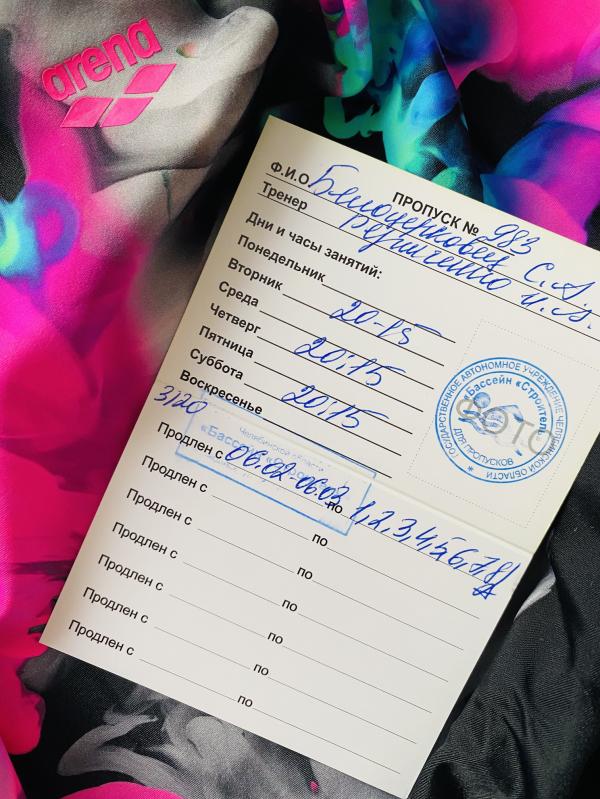 ПРОПУСК № 983
Ф.И.О Белоцерковец С. А.
Тренер Резниченко И. А.
Дни и часы занятий:
Понедельник
Вторник 20-15
Среда
Четверг 20:15
Пятница
Суббота 20:15
Воскресенье
3/20
Продлен с 06.02-06.03 по 1,2,3,4,5,6,7,8
Продлен с по
Продлен с по
Продлен с по
Продлен с по
Продлен с по
Продлен с по
ФОТО
ГОСУДАРСТВЕННОЕ АВТОНОМНОЕ УЧРЕЖДЕНИЕ ЧЕЛЯБИНСКОЙ ОБЛАСТИ
«Бассейн «Строитель»
ДЛЯ ПРОПУСКОВ
Челябинской области
«Бассейн
arena